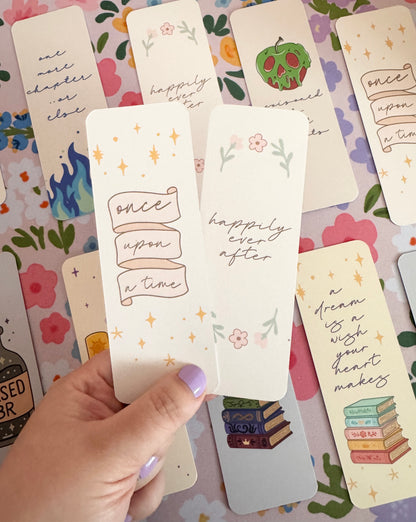 one
more
chapter
...or
else
happily
ever
after
once
upon
a time
once
upon
a time
happily
ever
after
a
dream
is a
wish
your
heart
makes